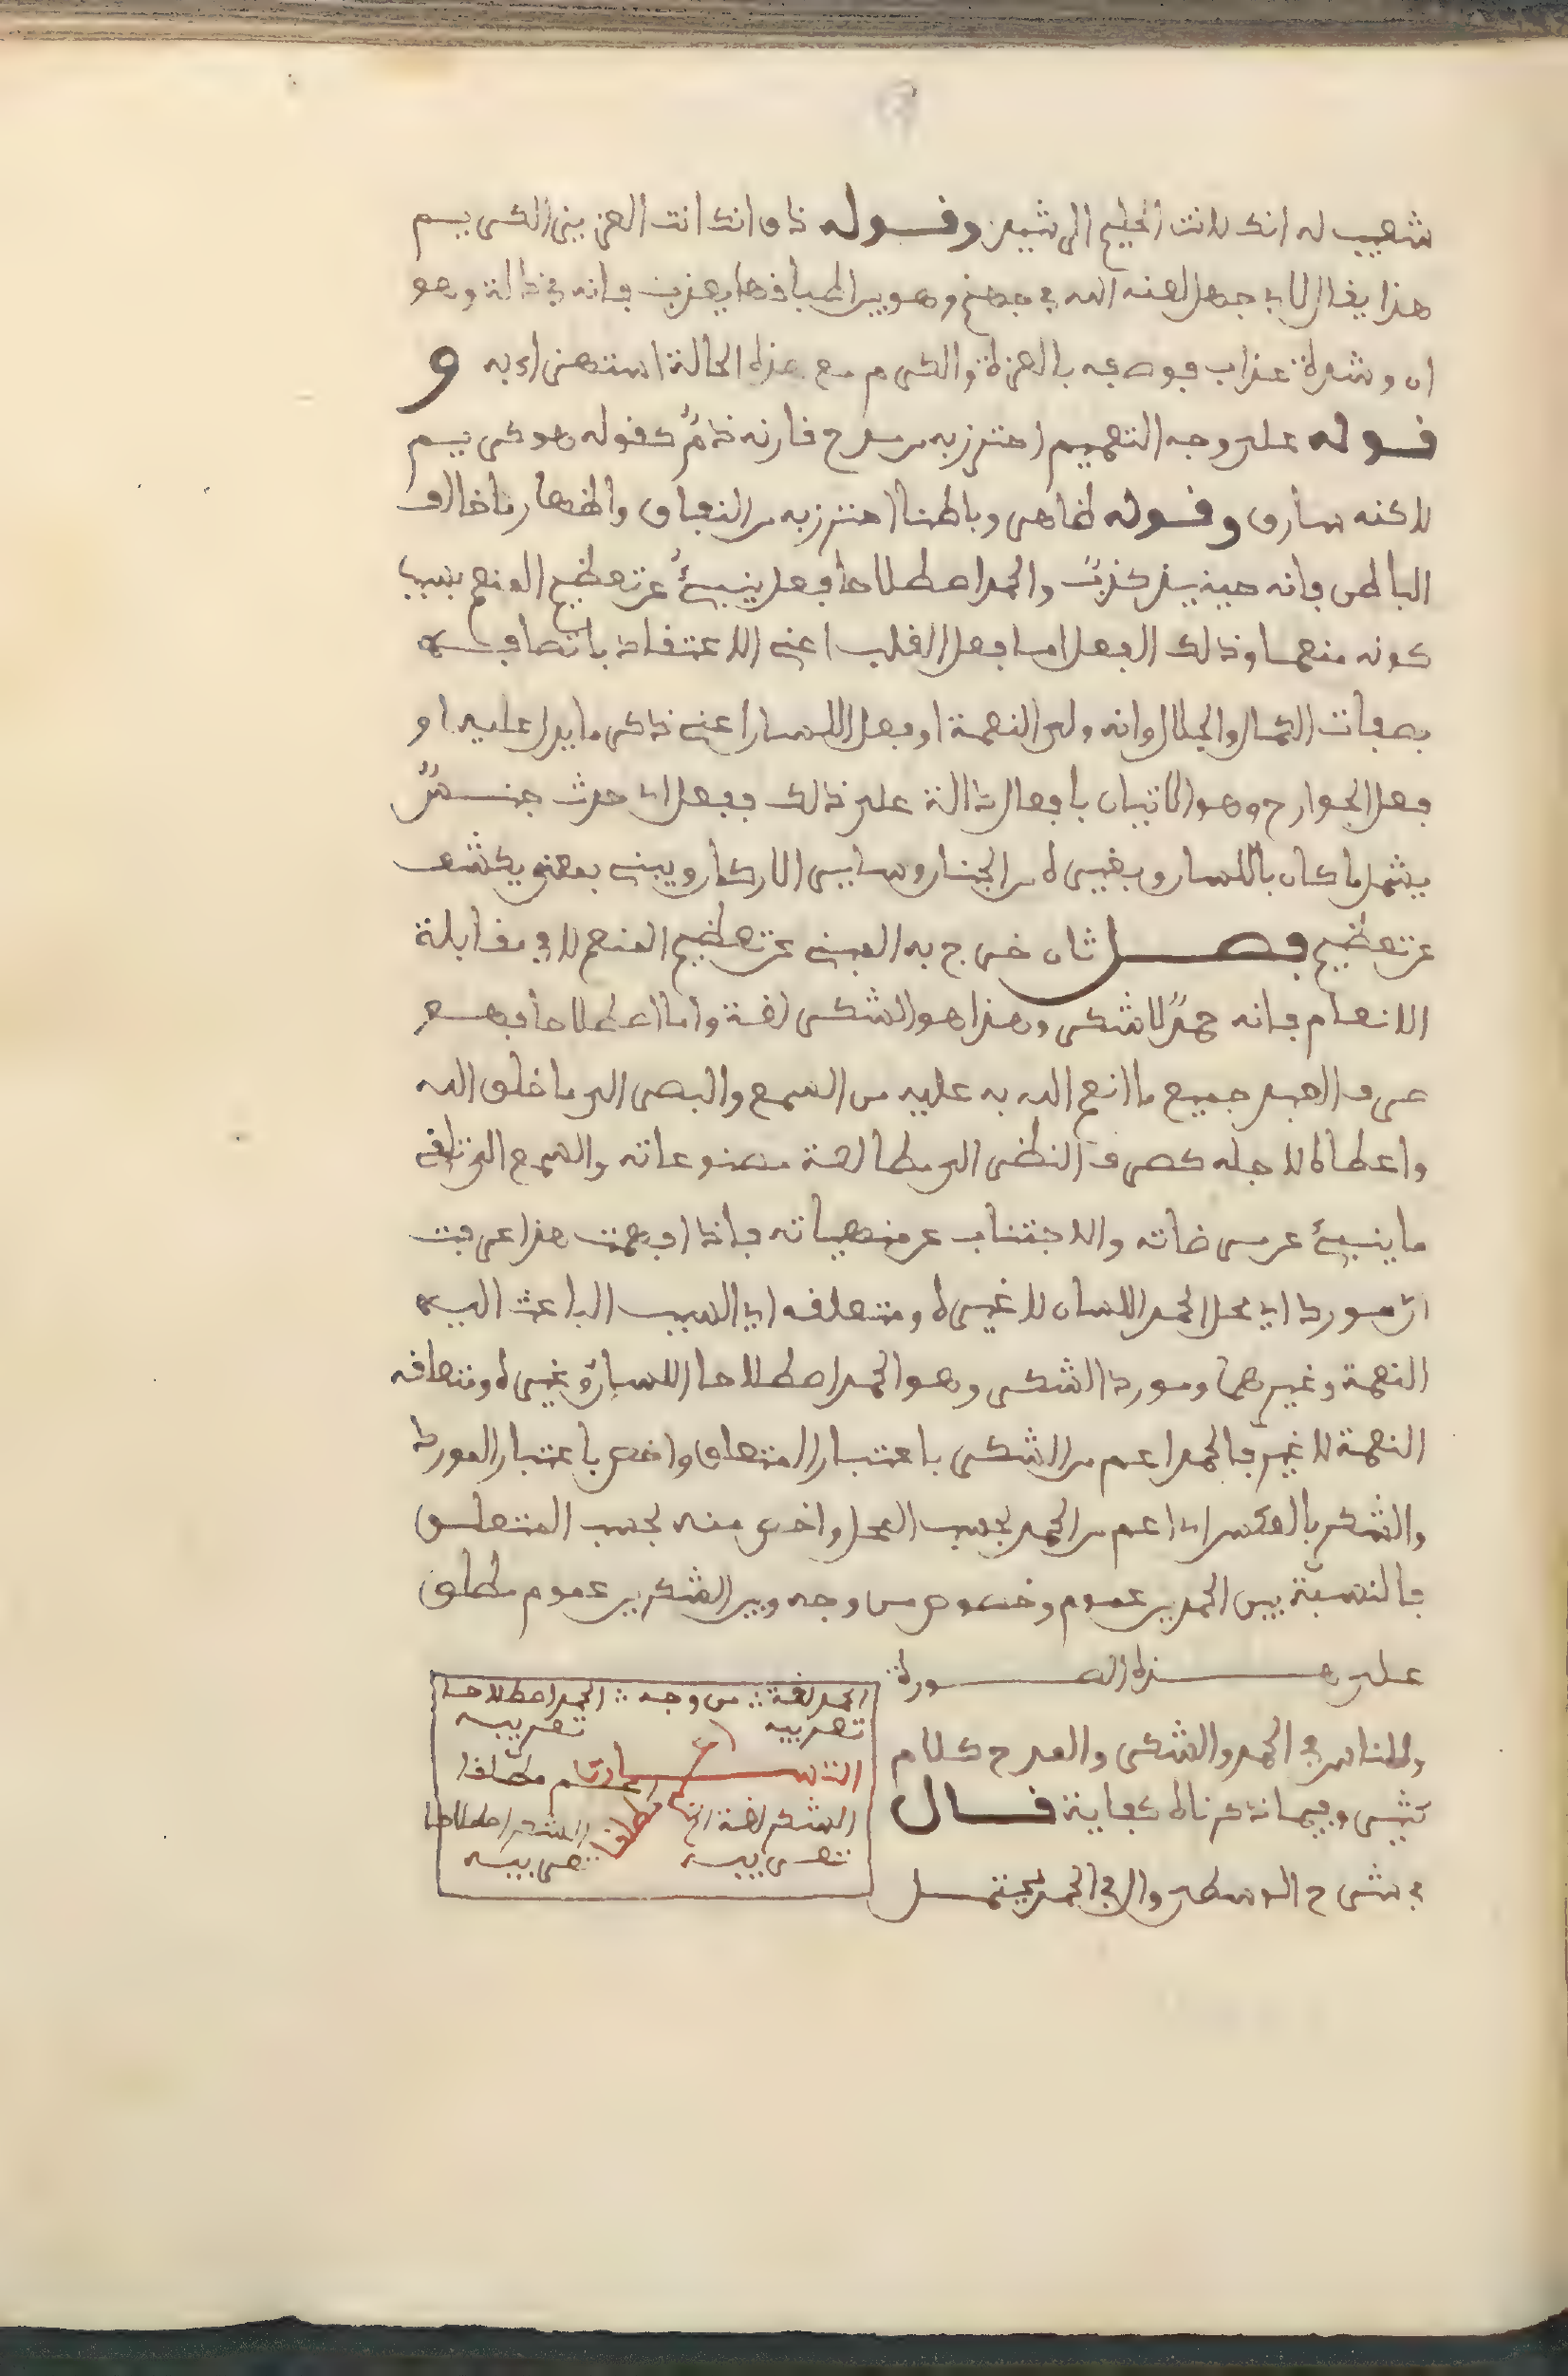 شعيب له انك لانت الحليم الرشيد وقوله ذق انك انت العزيز الكريم
هذا يقال لابي جهل لعنه الله في جهنم وهو بين اطباقها يعذب فانه في ذالة وهو
ان وشدة عذاب فوصفه بالعزة والكرم مع هذه الحالة استهزاء به و
قوله على وجه التعميم احترز به من مدح قارنه ذم كقوله هو كريم
لاكنه سارق وقوله ظاهر وباطنا احترز به من النفاق واظهار ما خالف
الباطن فانه حينيذ كذب والحمد اصطلاحا فعل ينبئ عن تعظيم المنعم بسبب
كونه منعما وذلك الفعل اما فعل القلب اعني الاعتقاد باتصافه
بصفات الكمال والجلال وانه ولي النعمة او فعل اللسان اعني ذكر ما يدل عليه او
فعل الجوارح وهو الاتيان بافعال دالة على ذلك ففعل اي حدث جنس
يشمل ما كان باللسان وبغيره من الجنان وسايبر الاركان وينبئ بمعنى يكشف
عن تعظيم فصل ثان خرج به المبنئ عن تعظيم المنعم لا في مقابلة
الانعام فانه حمد لا شكر وهذا هو الشكر لغة واما اصطلاحا فهو
صرف العبد جميع ما انعم الله به عليه من السمع والبصر الى ما خلق الله
واعطاه لاجله كصرف النظر الى مطالعة مصنوعاته والسمع الى تلقي
ما ينبئ عن مرضاته والاجتناب عن منهياته فاذا فهمت هذا عرفت
ان مورد اي محل الحمد اللسان لا غيره ومتعلقه اي السبب الباعث اليه
النعمة وغيرهما ومورد الشكر وهو الحمد اصطلاحا اللسان وغيره ومتعلقه
النعمة لا غير فالحمد اعم من الشكر باعتبار المتعلق واخص باعتبار المورد
والشكر بالعكس اي اعم من الحمد بحسب المحل واخص منه بحسب المتعلق
فالنسبة بين الحمدين عموم وخصوص من وجه وبين الشكرين عموم مطلق
على هذه الصورة
وللناس في الحمد والشكر والمدح كلام
كثير وفيما ذكرناه كفاية قال
في شرح الوسطى وال في الحمد يحتمل
الحمد لغة من وجه الحمد اصطلاحا
تعريفه تعريفه
مطلقا
الشكر لغة مطلقا الشكر اصطلاحا
تعريفه تعريفه